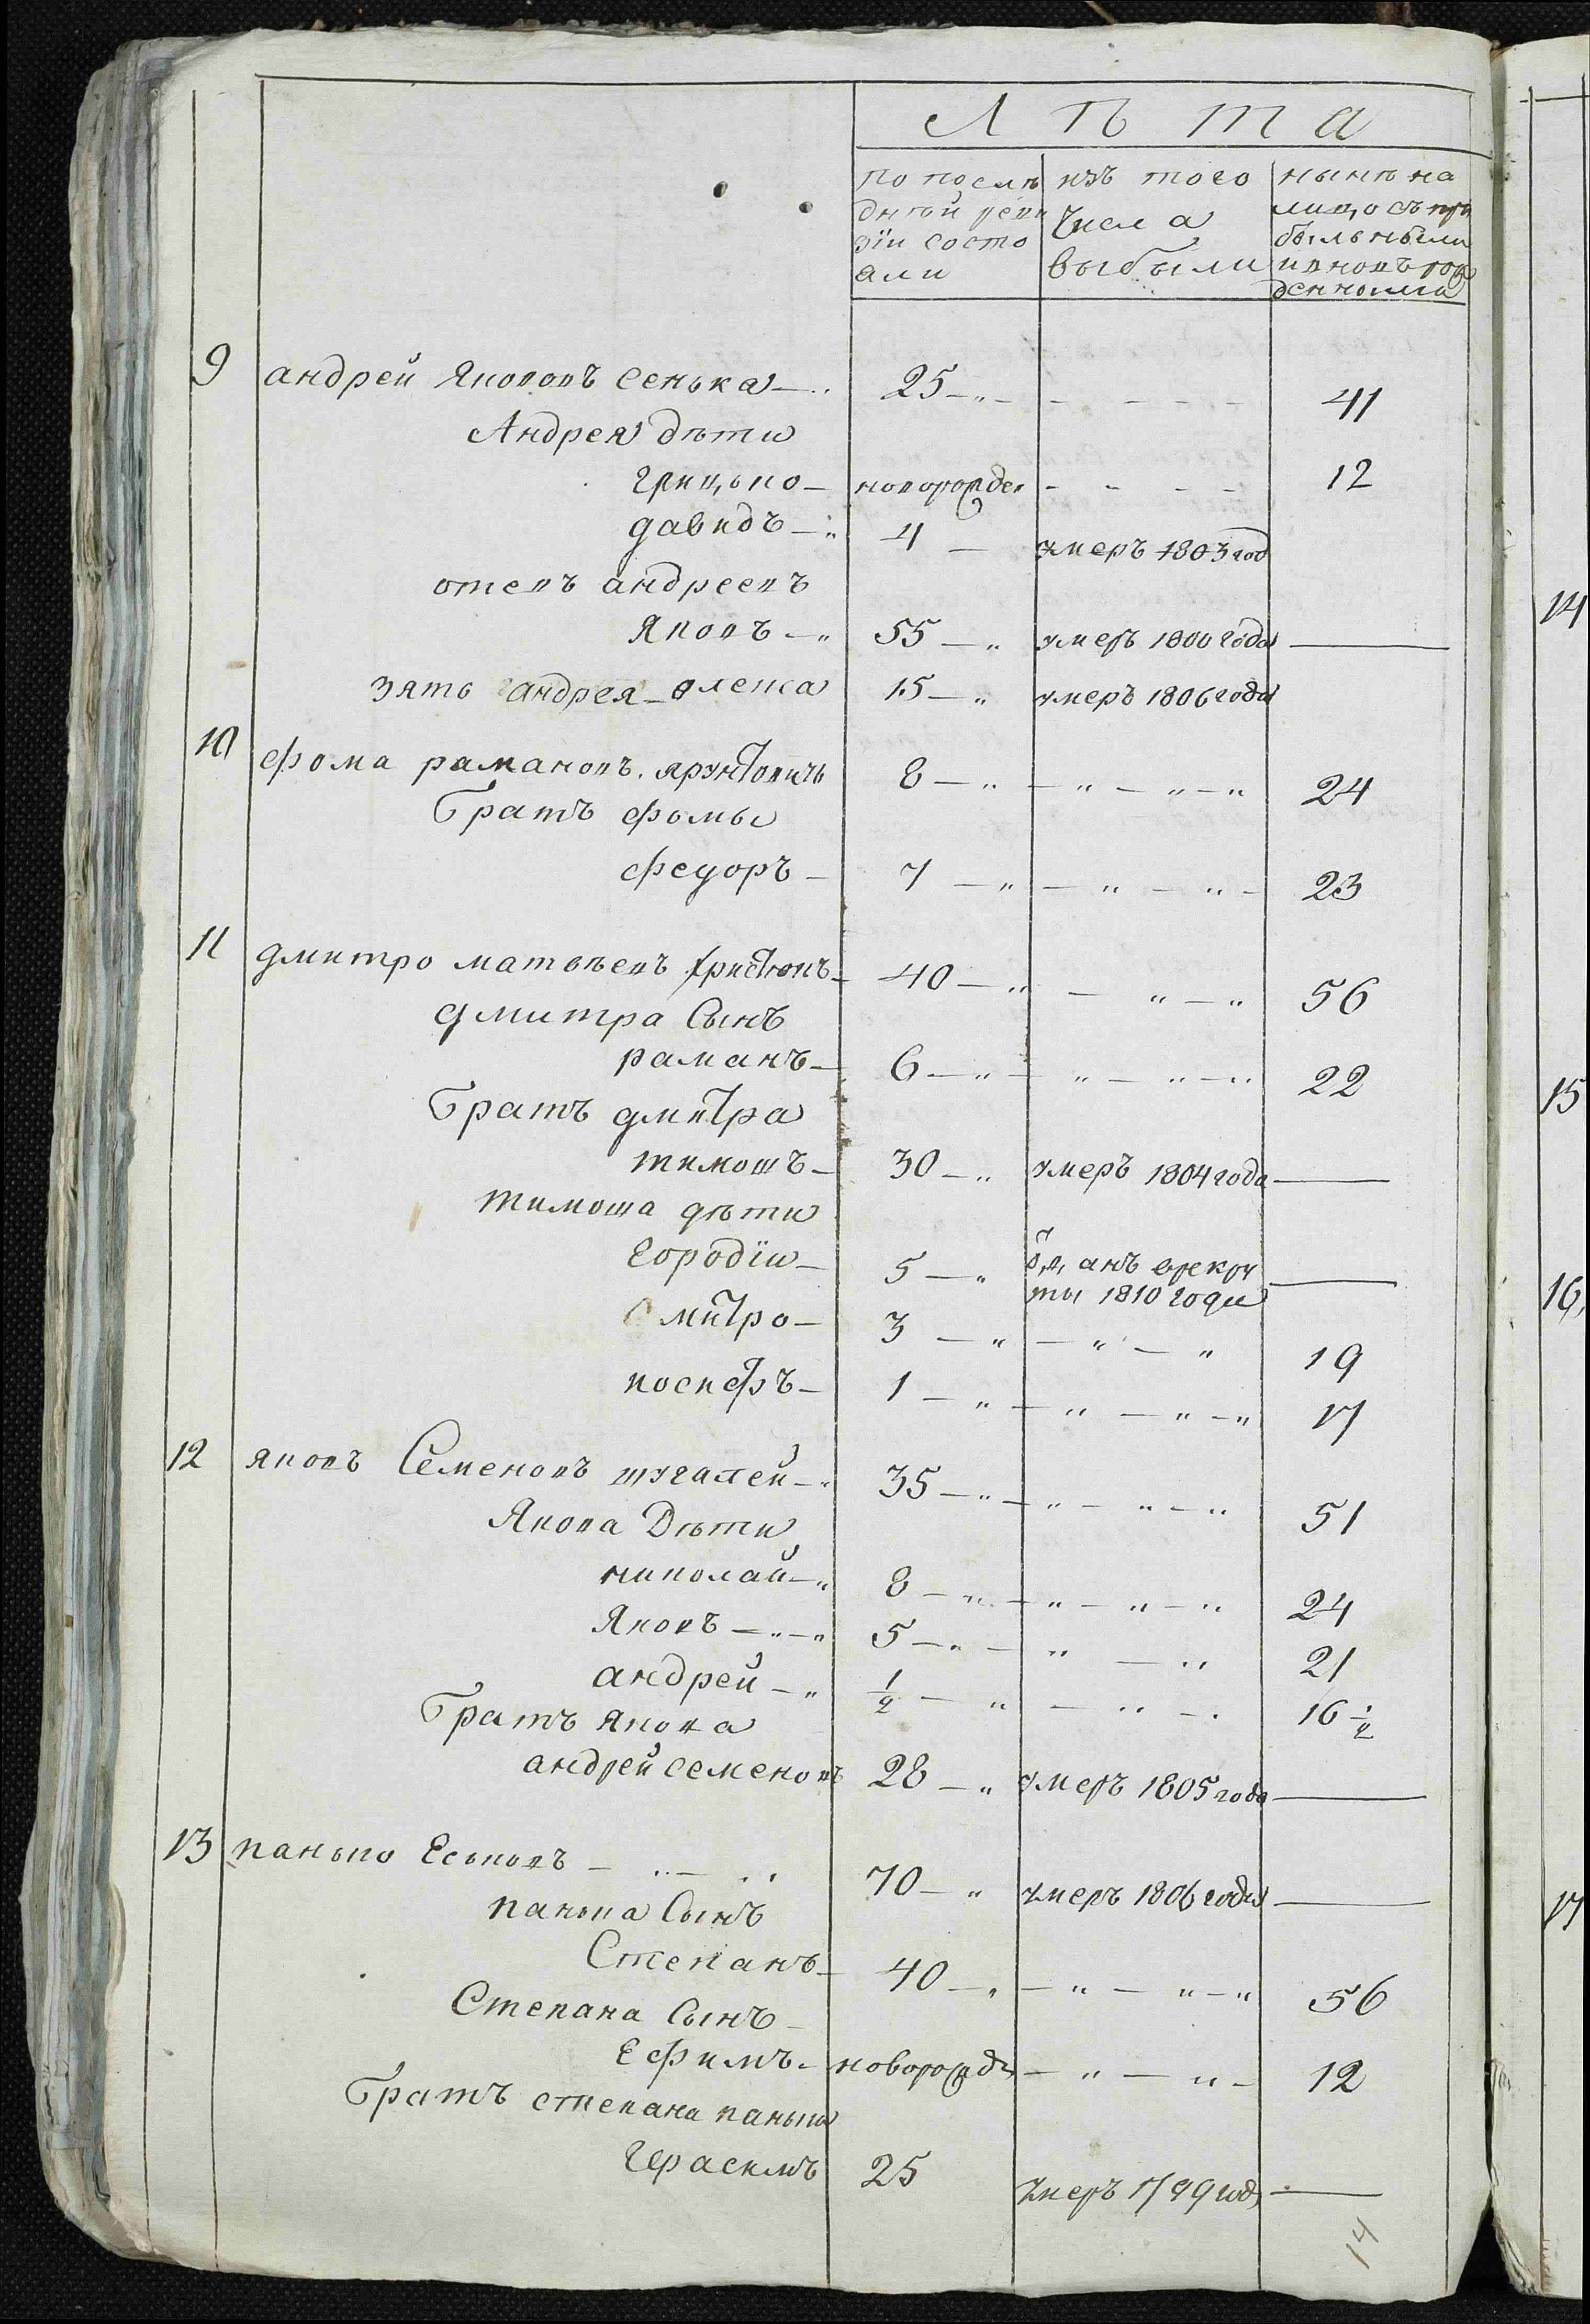 Лѣта
по послѣ изъ того нынѣ на
дней реви числа лицо съ при
зіи состо выбыли былыми
яли и вновь рож
денными
9 андрей Якововъ сенька 25 41
Андрея дѣти
грицько новорожде 12
давидъ 4 умеръ 1803 год
отецъ андреевъ
Яковъ 55 умеръ 1800 года
зять андрея олекса 15 умеръ 1806 года
10 фома рамановъ 8 24
Братъ фомы
федоръ 7 23
11 дмитро матвѣевъ 40 56
дмитра Сынъ
раманъ 6 22
Братъ дмитра
тимошъ 30 умеръ 1804 года
тимоша дѣти
5 анъ врекру
ты 1810 года
митро 3 19
иосифъ 1 17
12 яковъ Семеновъ шугалей 35 51
Якова Дѣти
николай 8 24
Яковъ 5 21
андрей 1/2 16 1/2
Братъ якова
андрей семеновъ 28 умеръ 1805 года
13 панько Еськовъ 70 умеръ 1806 года
панька Сынъ
Степанъ 40 56
Степана Сынъ
Ефимъ новорожд 12
Братъ степана панька
Герасимъ 25 умеръ 1799 год
14
14
15
16
17